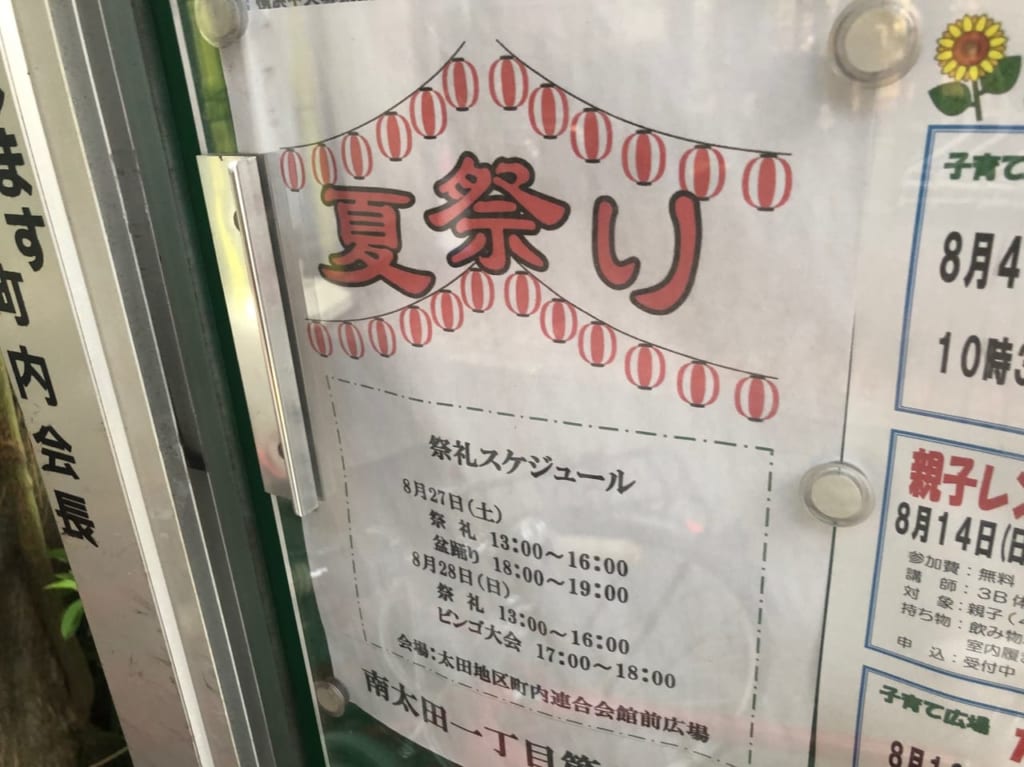 ます町内会長
夏祭り
祭礼スケジュール
8月27日(土)
祭 礼 13:00〜16:00
盆踊り 18:00〜19:00
8月28日(日)
祭 礼 13:00〜16:00
ビンゴ大会 17:00〜18:00
会場:太田地区町内連合会館前広場
南太田一丁目第
子育て
8月4
10時3
親子レ
8月14日(日
参加費:無料
講 師:3B体
対 象:親子(
持ち物:飲み物
室内履き
申 込:受付中
子育て広場